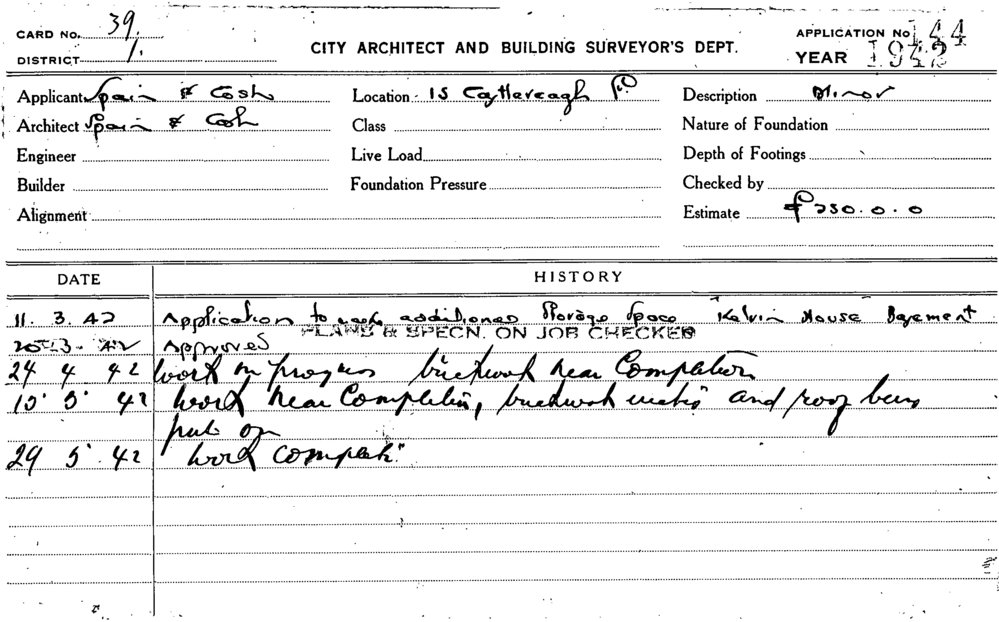 CARD No. 39
DISTRICT 1.
CITY ARCHITECT AND BUILDING SURVEYOR'S DEPT.
APPLICATION No 144
YEAR 1942
Applicant Spain & Cosh Location 15 Castlereagh St Description Minor
Architect Spain & Cosh Class Nature of Foundation
Engineer Live Load Depth of Footings
Builder Foundation Pressure Checked by
Alignment Estimate £250.0.0
DATE HISTORY
11. 3. 42 Application to make additional storage space Kelvin House Basement
PLANS & SPECN. ON JOB CHECKED
20 3. 42 Approved
24 4. 42 Work in progress brickwork near Completion
15 5 42 Work near Completion, brickwork and roof being
put on
29 5. 42 Work complete